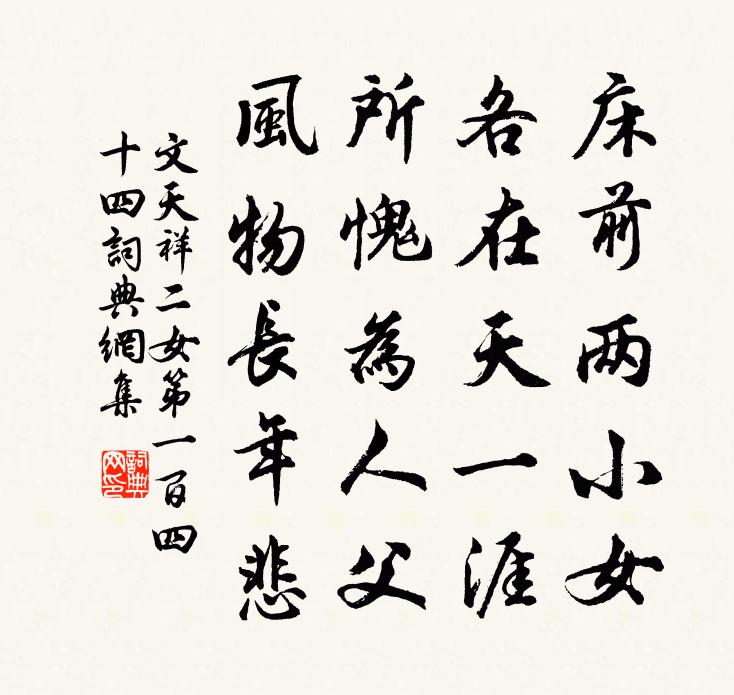 床前两小女
各在天一涯
所愧為人父
風物長年悲
文天祥二女第一百四
十四詞典網集
詞典网印